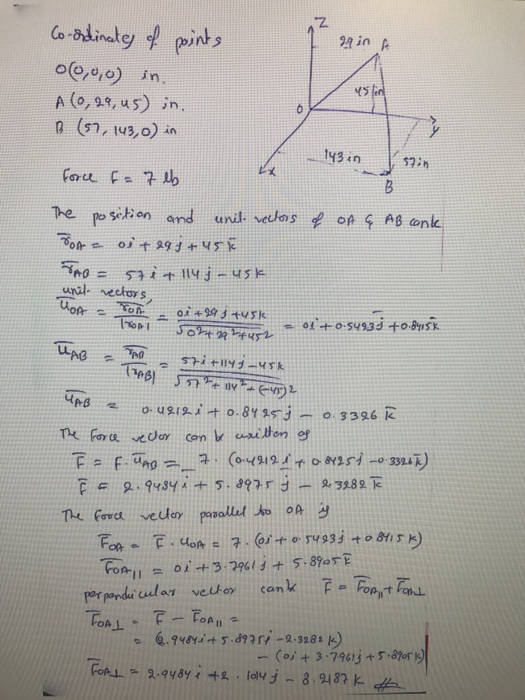 Co-ordinates of points
O(0,0,0) in.
A (0, 29, 45) in.
B (57, 143, 0) in
Force F = 7 lb
Z
29 in A
45 in
O
y
143 in
57in
x
B
The position and unit vectors of OA & AB can be
r̅OA = 0i + 29j + 45k̅
r̅AB = 57i + 114j - 45k
unit vectors,
u̅OA = r̅OA / |rOA| = 0i + 29j + 45k / √0²+29²+45² = 0i + 0.5423j̅ + 0.8415k̅
u̅AB = r̅AB / |rAB| = 57i + 114j - 45k / √57²+114²+(-45)²
u̅AB = 0.4212i + 0.8425j - 0.3326k̅
The force vector can be written as
F̅ = F. u̅AB = 7. (0.4212i + 0.8425j - 0.3326k̅)
F̅ = 2.9484i + 5.8975j - 2.3282k̅
The force vector parallel to OA is
F̅OA = F̅. uOA = 7. (0i + 0.5423j + 0.8415k)
F̅OA|| = 0i + 3.7961j + 5.8905k̅
perpendicular vector can be F̅ = F̅OA|| + F̅OA⊥
F̅OA⊥ = F̅ - F̅OA|| =
= (2.9484i + 5.8975j - 2.3282k)
- (0i + 3.7961j + 5.8905k)
F̅OA⊥ = 2.9484i + 2.1014j - 8.2187k